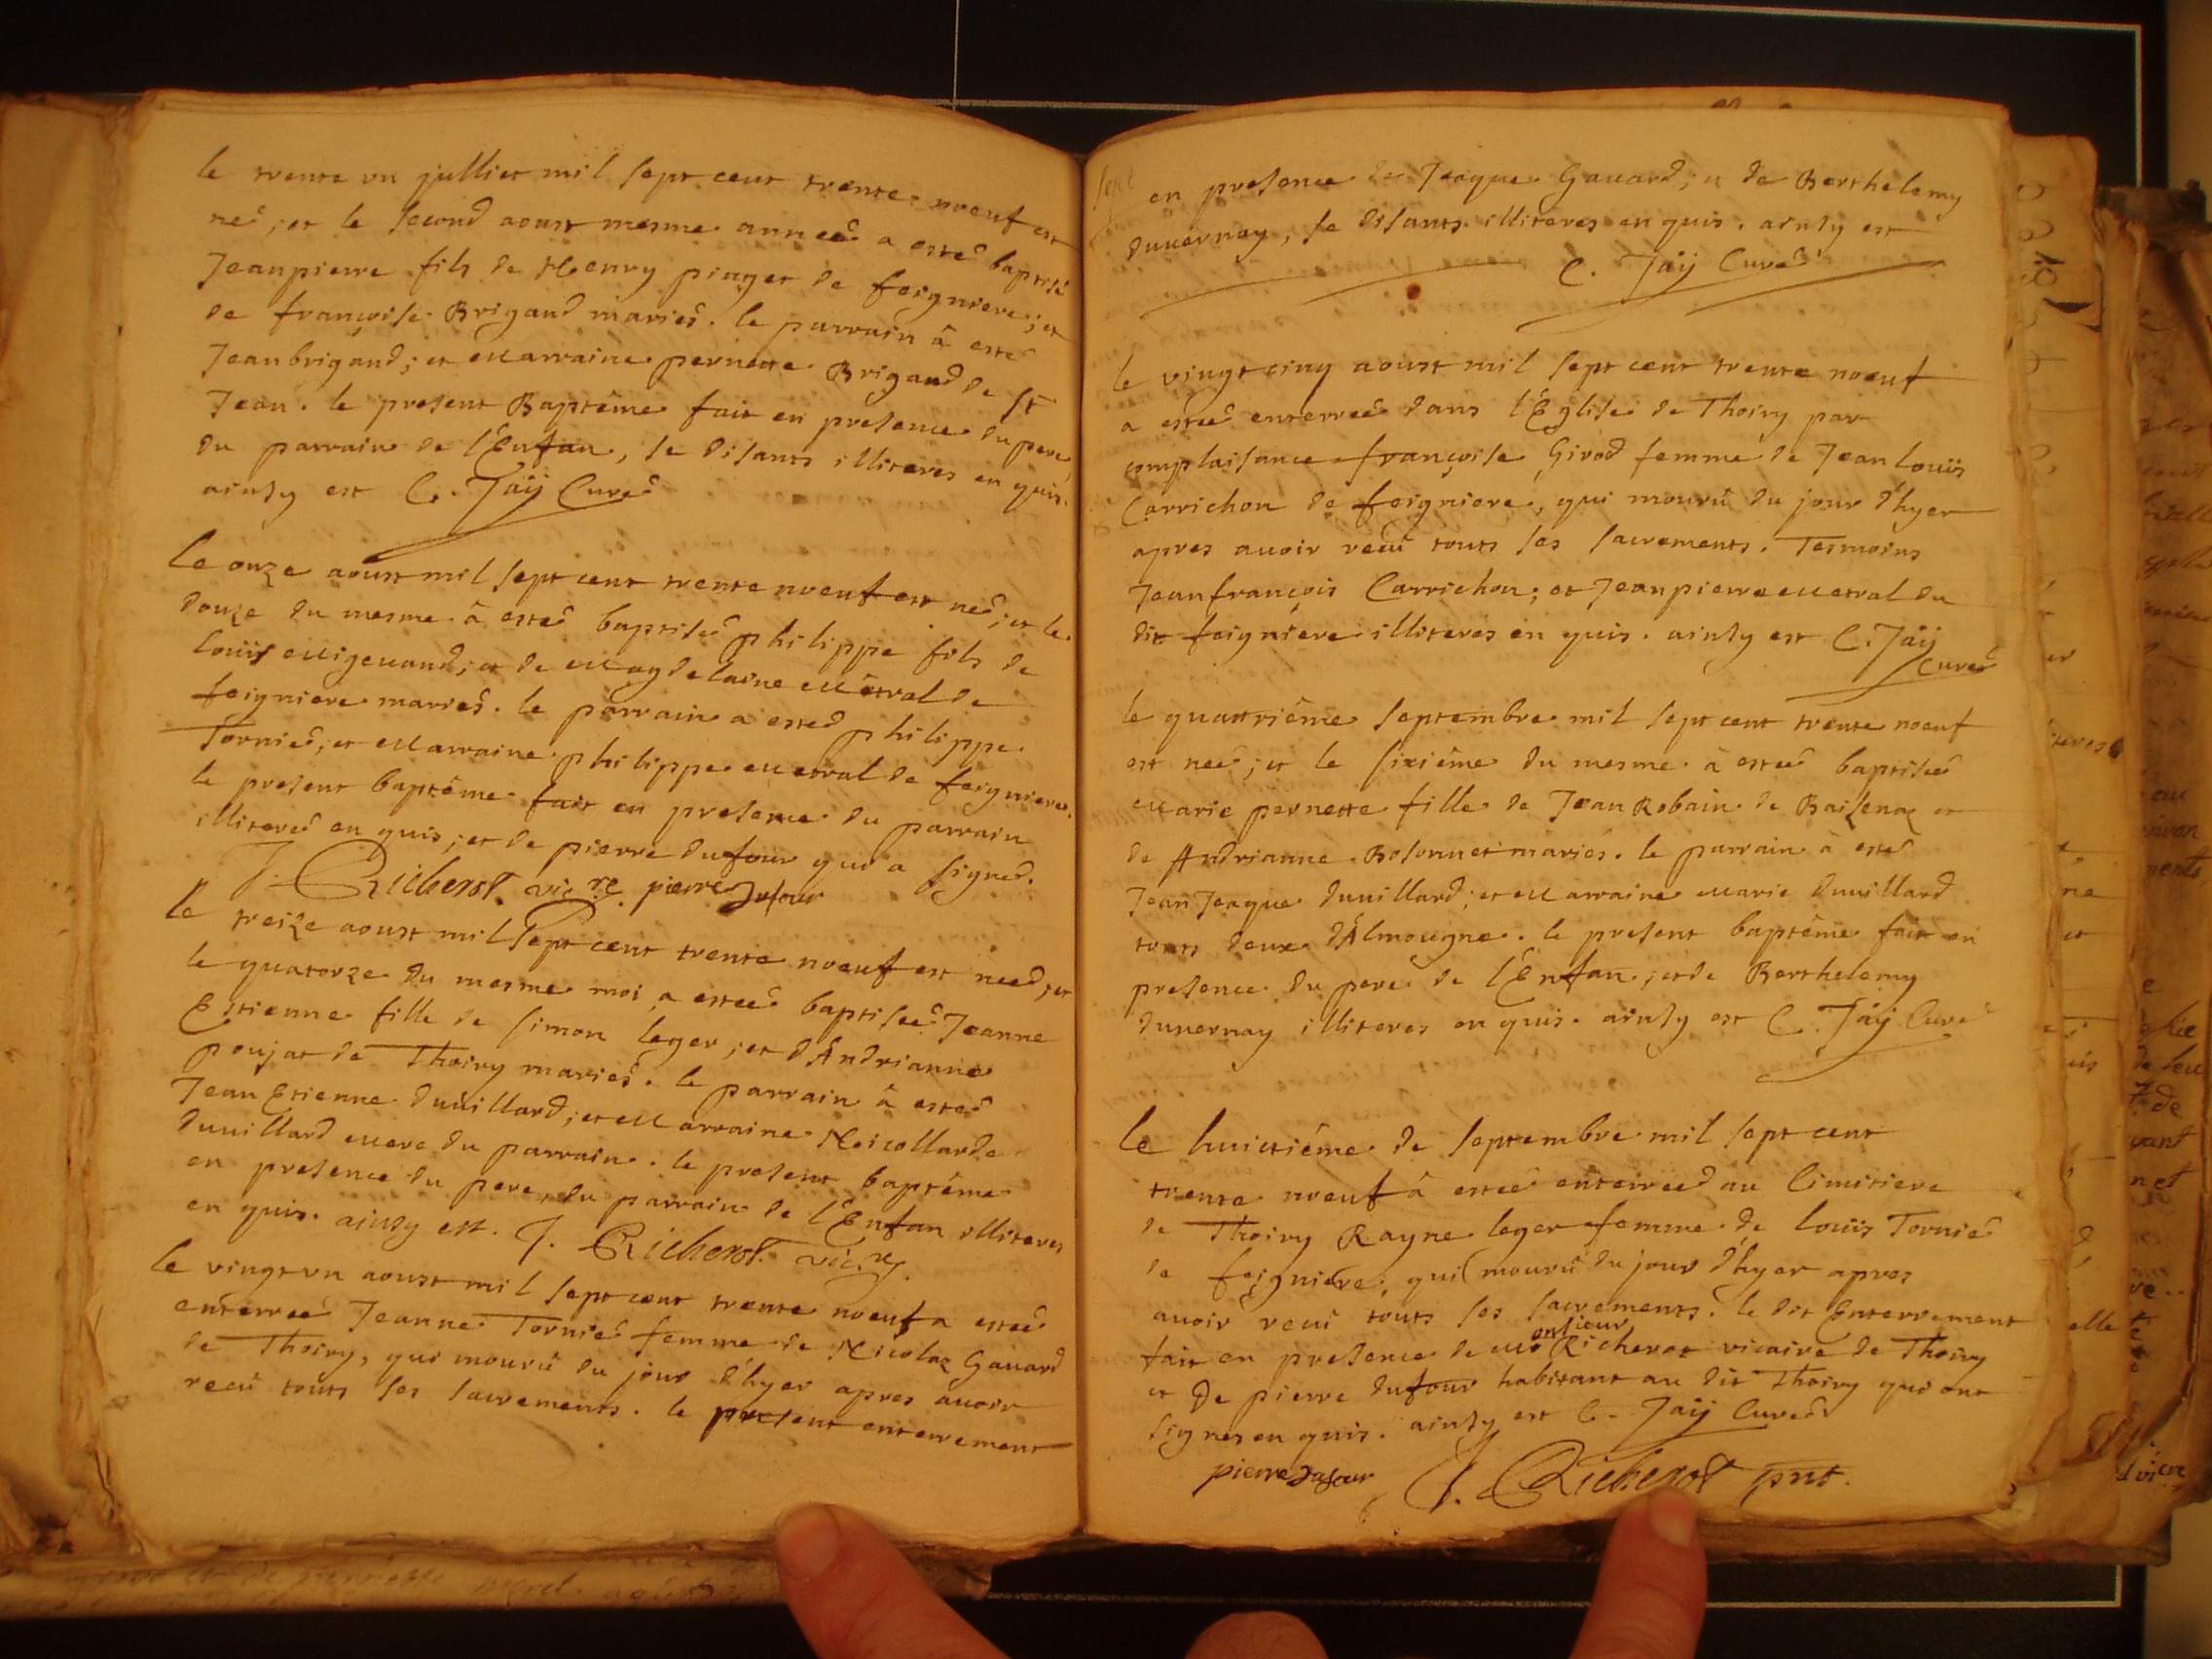 le trente vn jullier mil sept cent trente noeuf est
né ; et le second aoust mesme anneé a esté baptisé
Jeanpierre fils de Henry pinget de feigniere ; et
de françoise Brigand mariés. le parrain â esté
Jean brigand ; et Marraine pernette Brigand de St
Jean. le present Baptême fait en presence du pere,
du parrain de l'Enfan, se disants illiteres en quis.
ainsy est C. Jaÿ Curé
Le onze aoust mil sept cent trente noeuf est né ; et le
douze du mesme â esté baptisé philippe fils de
Louïs Migeuand ; et de Magdelaine Metral de
feigniere mariés. le parrain a esté philippe
Tornié ; et Marraine philippe Metral de feigniere.
le present baptême fait en presence du parrain
illiteré en quis ; et de pierre dufour qui a signé.
J. Richerot vic.re pierre Dufour
le treize aoust mil sept cent trente noeuf est neé ; et
le quatorze du mesme moi a esteé baptiseé Jeanne
Estienne fille de simon leger ; et d'Andrianne
poujat de Thoiry mariés. le parrain â esté
Jean Etienne duuillard ; et Marraine Nicollarde
duuillard mere du parrain. le present baptême
en presence du pere, du parrain de l'Enfan illiteres
en quis. ainsy est. J. Richerot vic.re
le vingt vn aoust mil sept cent trente noeuf a esteé
enterreé Jeanne Tornié femme de Nicolaz Gauard
de Thoiry, qui mourû du jour d'hyer apres auoir
receu touts ses sacrements. le present enterrement
en presence de Jeaque Gauard ; et de Berthelemy
duuernay, se disants illiteres en quis. ainsy est
C. Jaÿ Curé
le vingt cinq aoust mil sept cent trente noeuf
a esteé enterreé dans l'Eglise de Thoiry par
complaisance françoise Girod femme de Jean Louïs
Carrichon de feigniere, qui mourû du jour d'hyer
apres auoir receu touts ses sacrements. Tesmoins
Jeanfrançois Carrichon ; et Jeanpierre Metral du
dit feigniere illiteres en quis. ainsy est C. Jaÿ
Curé
le quattriême septembre mil sept cent trente noeuf
est neé ; et le sixiême du mesme â esteé baptiseé
Marie pernette fille de Jean Robain de Baizenaz et
de Andrianne Bosonnet mariés. le parrain â esté
Jean Jeaque duuillard ; et Marraine Marie duuillard
touts deux d'Almougne. le present baptême fait en
presence du pere de l'Enfan ; et de Berthelemy
duuernay illiteres en quis. ainsy est C. Jaÿ Curé
le huictiême de septembre mil sept cent
trente noeuf â esteé enterreé au Cimitiere
de Thoiry Rayne leger femme de louïs Tornié
de feigniere, qui mourû du jour d'hyer apres
auoir receu touts ses sacrements. le dit Enterrement
fait en presence de Monsieur Richerot vicaire de Thoiry
et de pierre dufour habitant au dit Thoiry qui ont
signés en quis. ainsy est C. Jaÿ Curé
pierre Dufour J. Richerot pnt.